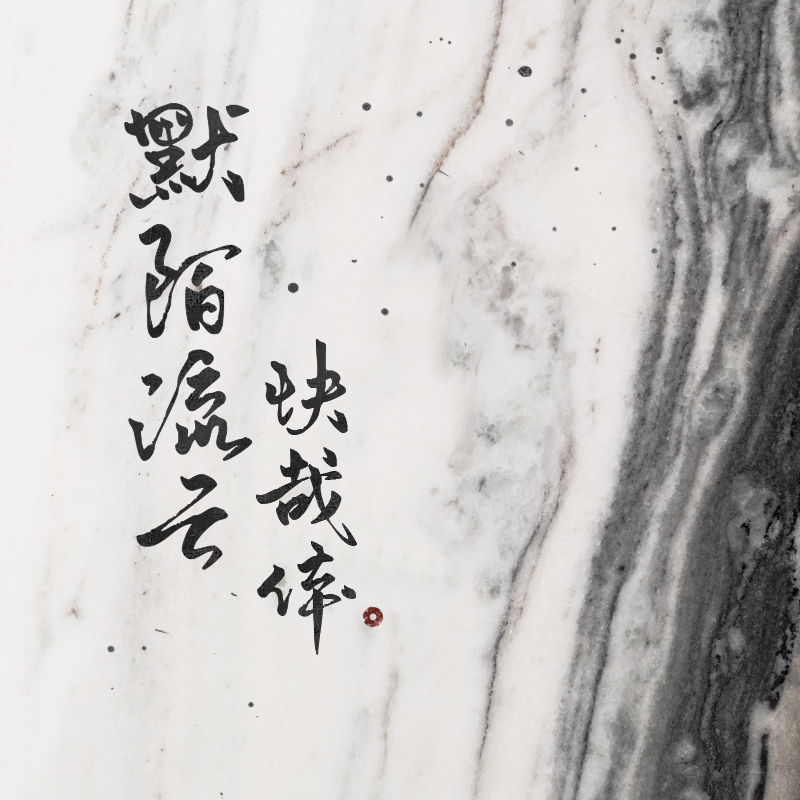 默陌流云
快哉体